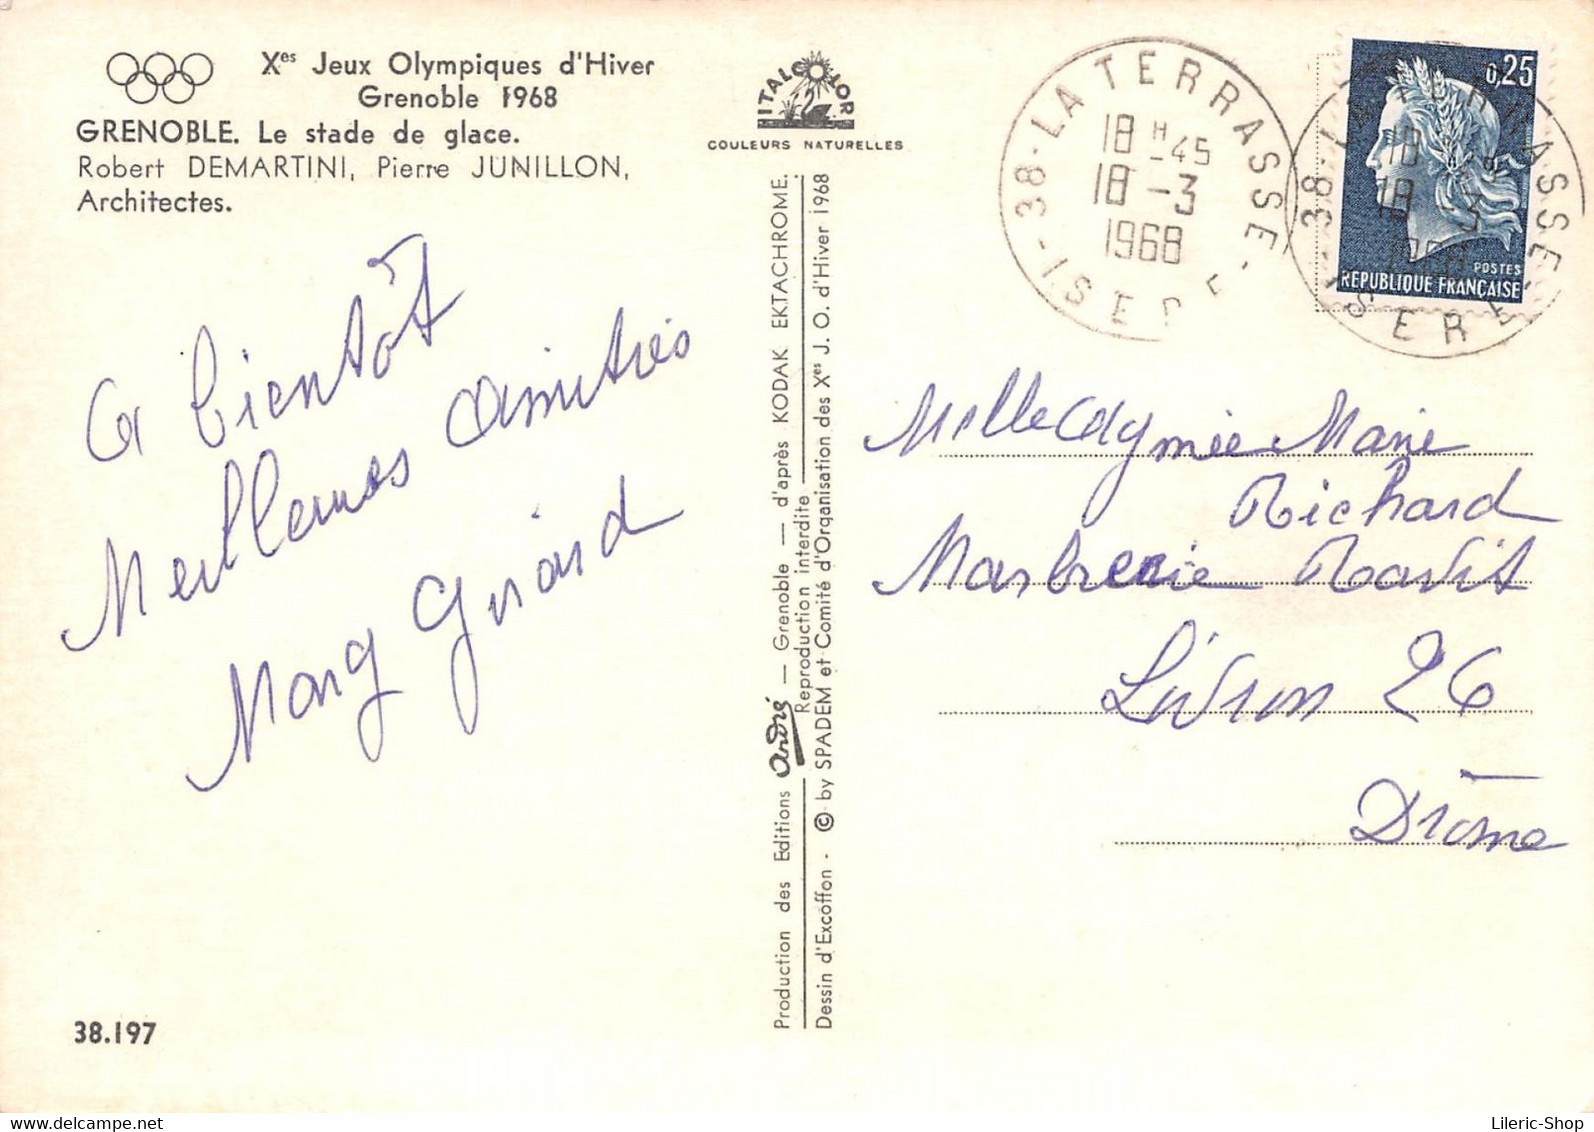 Xes Jeux Olympiques d'Hiver
Grenoble 1968
GRENOBLE. Le stade de glace.
Robert DEMARTINI, Pierre JUNILLON,
Architectes.
ITALCOLOR
COULEURS NATURELLES
38-LA TERRASSE-
18H-45
18-3
1968
-ISERE-
0,25
POSTES
REPUBLIQUE FRANÇAISE
A bientôt
Meilleures Amitiés
Marg Girard
Production des Editions André — Grenoble — d'après KODAK EKTACHROME.
Reproduction interdite
Dessin d'Excoffon - © by SPADEM et Comité d'Organisation des Xes J. O. d'Hiver 1968
Melle Marie
Richard
Marbrerie
Livron 26
Drome
38.197
Lileric-Shop